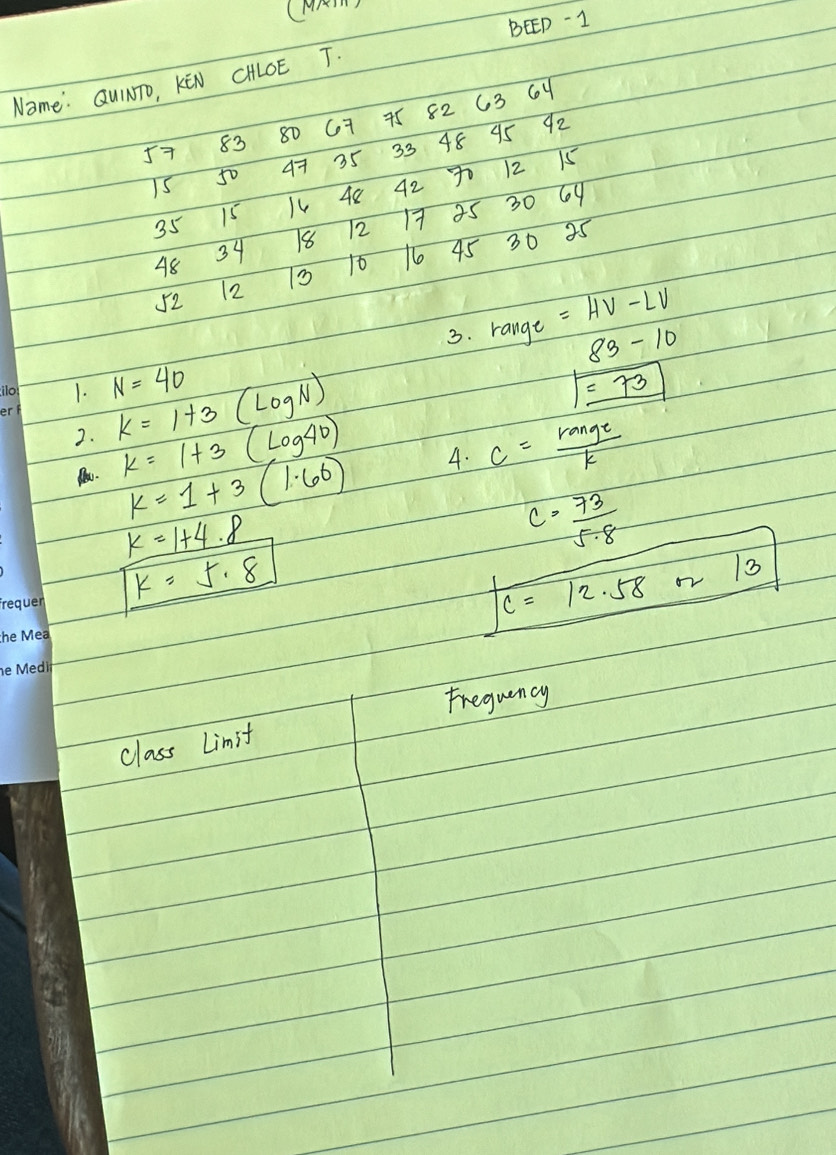 (MATH)
BEED - 1
Name: QUINTO, KEN CHLOE T.
57 83 80 67 75 82 63 64
15 50 47 35 33 48 45 42
35 15 16 48 42 70 12 15
48 34 18 12 17 25 30 64
52 12 13 10 16 45 30 25
1. N = 40
2. K = 1+3 (LogN)
K = 1+3 (Log40)
K = 1 + 3 (1.60)
K = 1+4.8
K = 5.8
3. range = HV - LV
83 - 10
= 73
4. C = range
K
C = 73
5.8
C = 12.58 or 13
Class Limit
Frequency
ilo
er
frequer
the Mea
he Medi